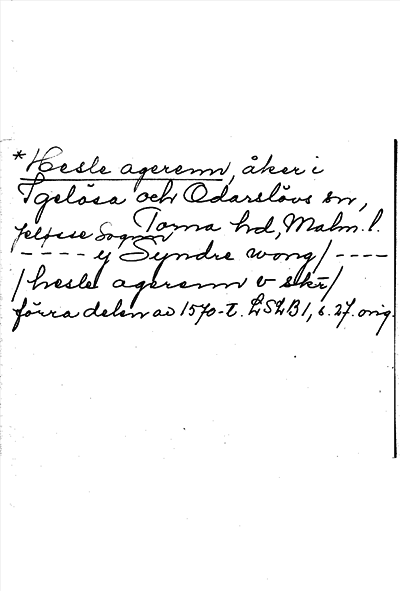 *Hesle agerenn, åker i
Igelösa och Odarslövs sn,
Torna hd, Malm. l.
Sognn
- - - - y Syndre wong/ - - - -
/hesle agerenn v skr/
förra delen av 1570-t. LSLB1, s. 27. orig.